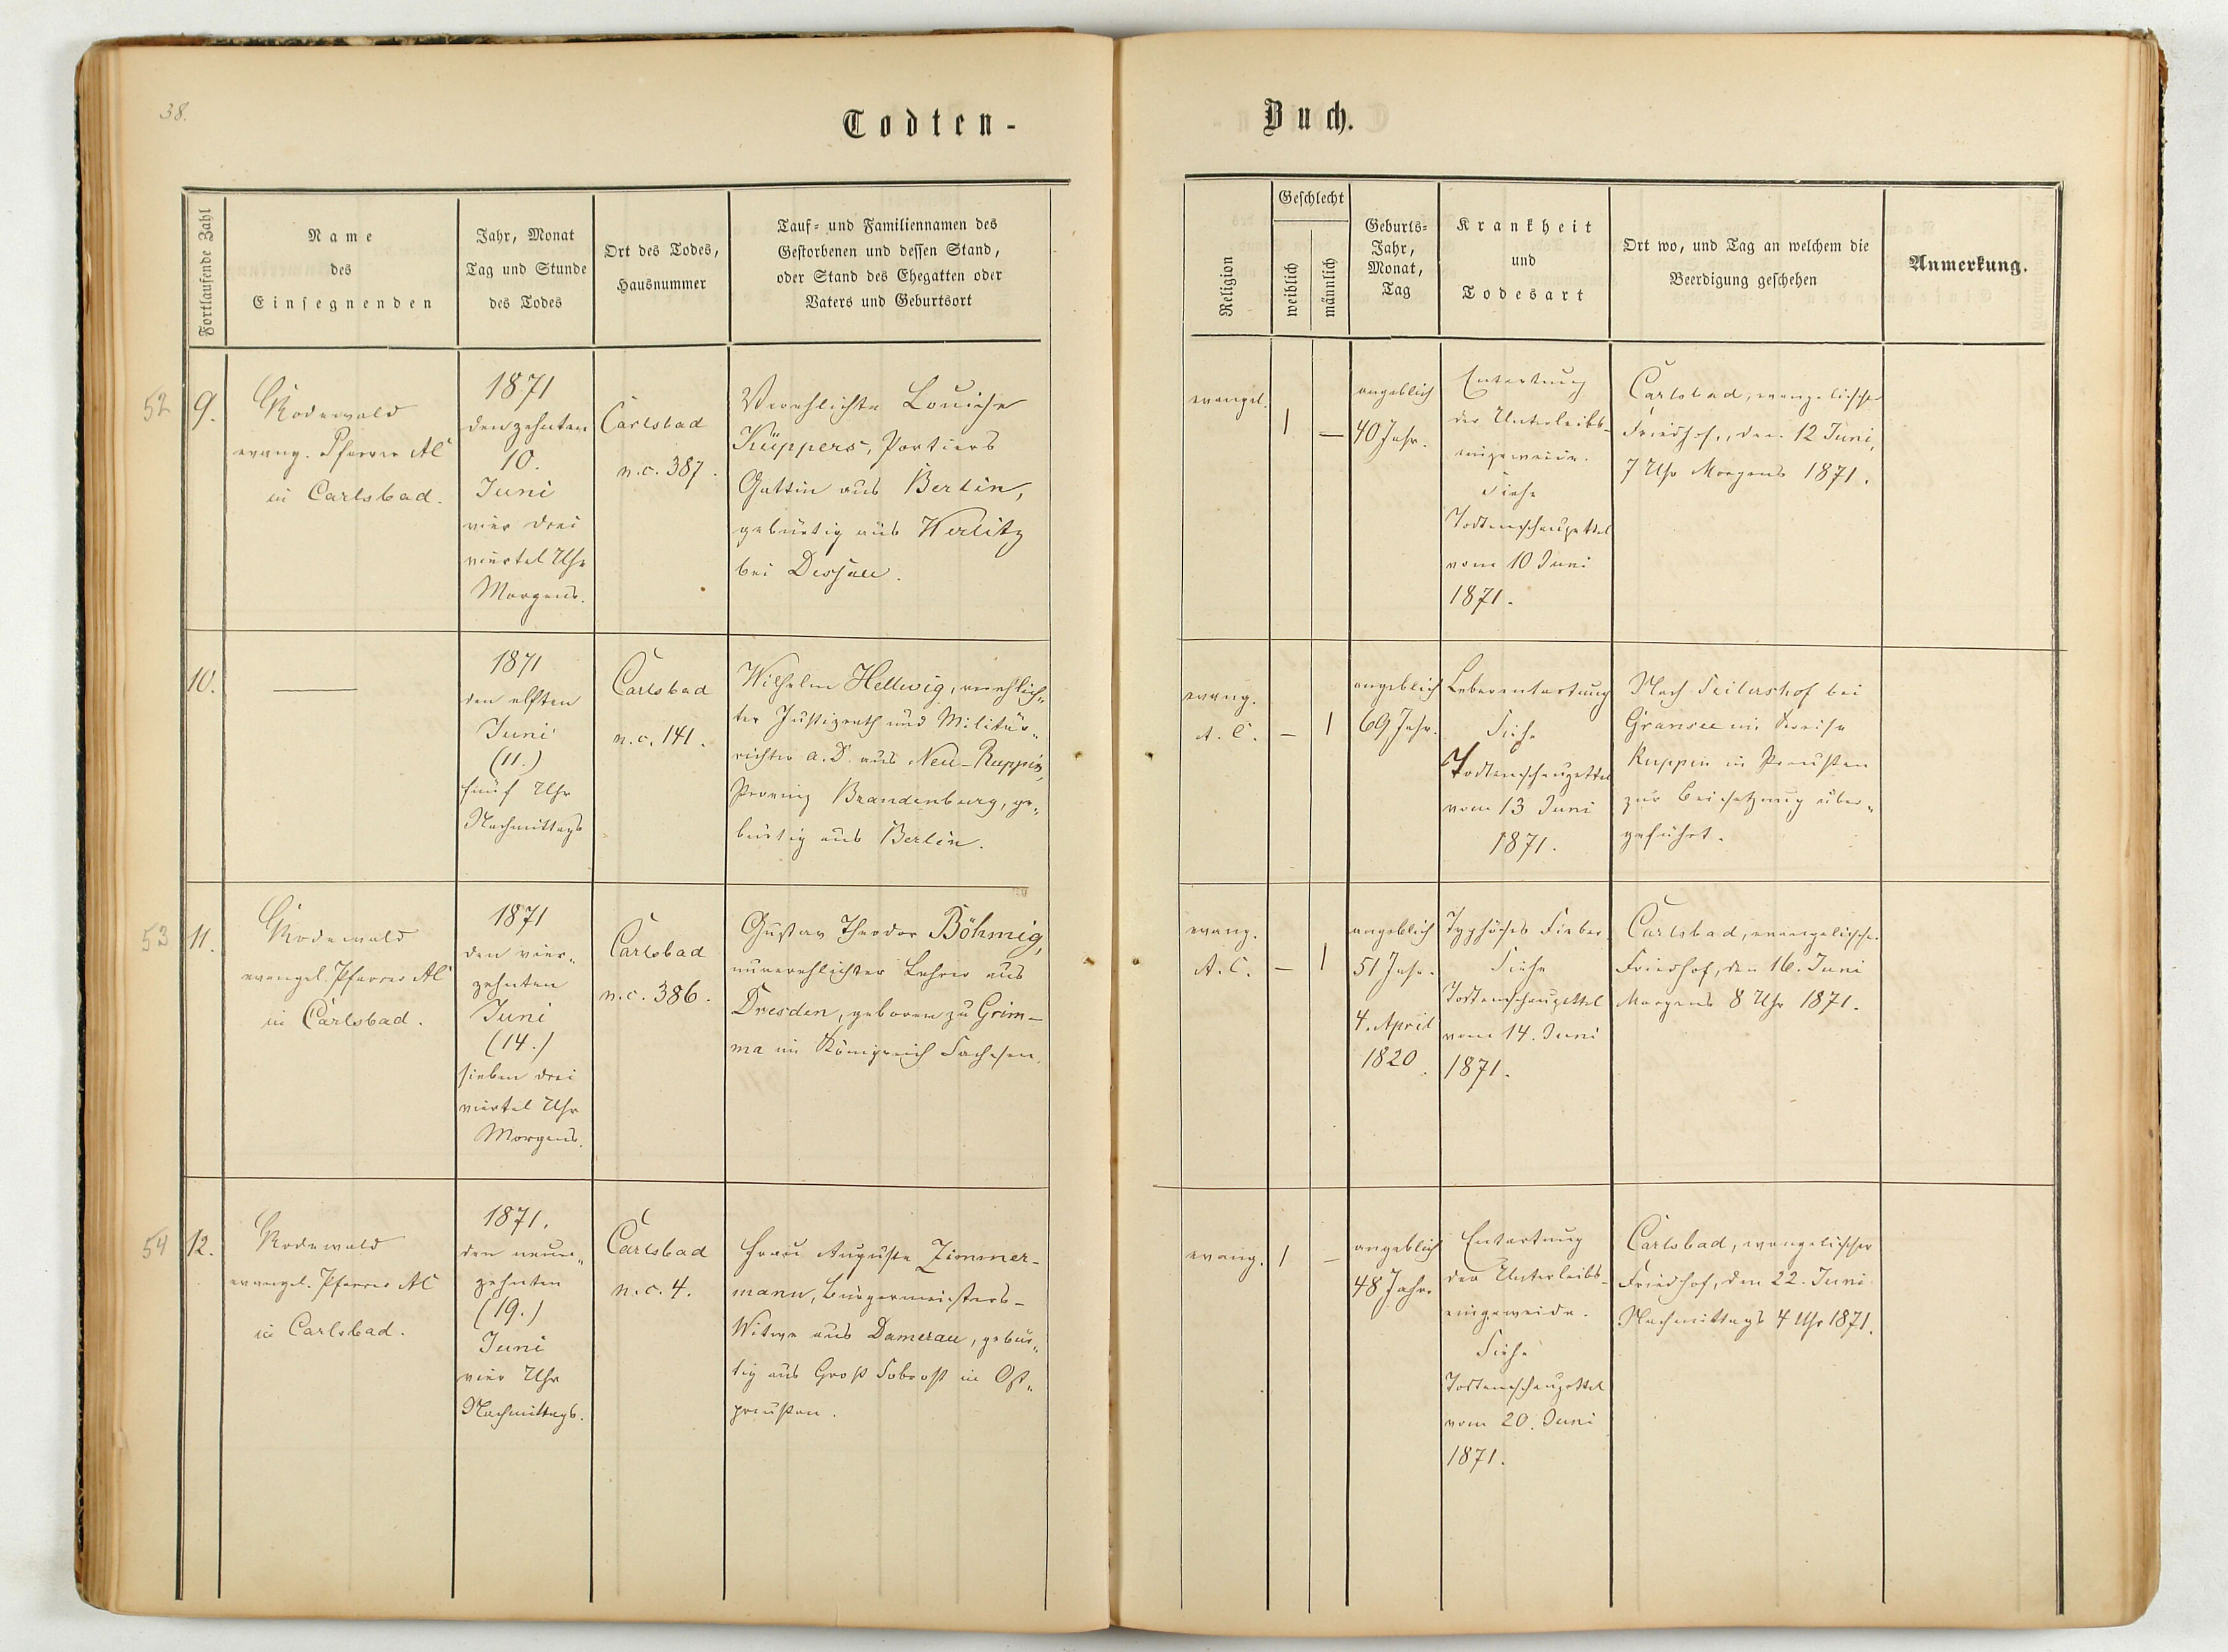 38.
Todten-
Buch.
Fortlaufende Zahl
Name
des
Einsegnenden
Jahr, Monat
Tag und Stunde
des Todes
Ort des Todes,
Hausnummer
Tauf- und Familiennamen des
Gestorbenen und dessen Stand,
oder Stand des Ehegatten oder
Vaters und Geburtsort
Religion
Geschlecht
weiblich
männlich
Geburts-
Jahr,
Monat,
Tag
Krankheit
und
Todesart
Ort wo, und Tag an welchem die
Beerdigung geschehen
Anmerkung.
52
9.
Rodewald
evang. Pfarrer AC
in Carlsbad.
1871
den zehnten
10.
Juni
vier drei
viertel Uhr
Morgens.
Carlsbad
n.c. 387.
Verehlichte Louise
Küppers, Portiers
Gattin aus Berlin,
gebürtig aus Werlitz
bei Dessau.
evangel.
1
—
angeblich
40 Jahr.
Entartung
der Unterleibs-
eingeweide.
Siehe
Todtenschauzettel
vom 10 Juni
1871.
Carlsbad, evangelischer
Friedhof, den 12 Juni,
7 Uhr Morgens 1871.
10.
—
1871
den elften
Juni
(11.)
fünf Uhr
Nachmittags
Carlsbad
n.c. 141.
Wilhelm Hellwig, verehlich„
ter Justizrath und Militär„
richter a.D. aus Neu-Ruppin,
Provinz Brandenburg, ge„
bürtig aus Berlin.
evang.
A.C.
—
1
angeblich
69 Jahr.
Leberentartung
Siehe
Todtenschauzettel
vom 13 Juni
1871.
Nach Seilershof bei
Gransee im Kreise
Ruppin in Preußen
zur Beisetzung über„
geführt.
53
11.
Rodewald
evangel. Pfarrer AC
in Carlsbad.
1871
den vier„
zehnten
Juni
(14.)
sieben drei
viertel Uhr
Morgens.
Carlsbad
n.c. 386.
Gustav Theodor Böhmig,
unverehlichter Lehrer aus
Dresden, geboren zu Grim-
ma im Königreich Sachsen.
evang.
A.C.
—
1
angeblich
51 Jahr.
4. April
1820.
Typhöses Fieber
Siehe
Todtenschauzettel
vom 14. Juni
1871.
Carlsbad, evangelischer
Friedhof, den 16. Juni
Morgens 8 Uhr 1871.
54
12.
Rodewald
evangel. Pfarrer AC
in Carlsbad.
1871.
den neun„
zehnten
(19.)
Juni
vier Uhr
Nachmittags.
Carlsbad
n.c. 4.
Frau Auguste Zimmer-
mann, Bürgermeisters-
Witwe aus Damerau, gebür„
tig aus Groß Sobrost in Ost„
preußen.
evang.
1
—
angeblich
48 Jahr.
Entartung
der Unterleibs-
eingeweide.
Siehe
Todtenschauzettel
vom 20. Juni
1871.
Carlsbad, evangelischer
Friedhof, den 22. Juni
Nachmittags 4 Uhr 1871.